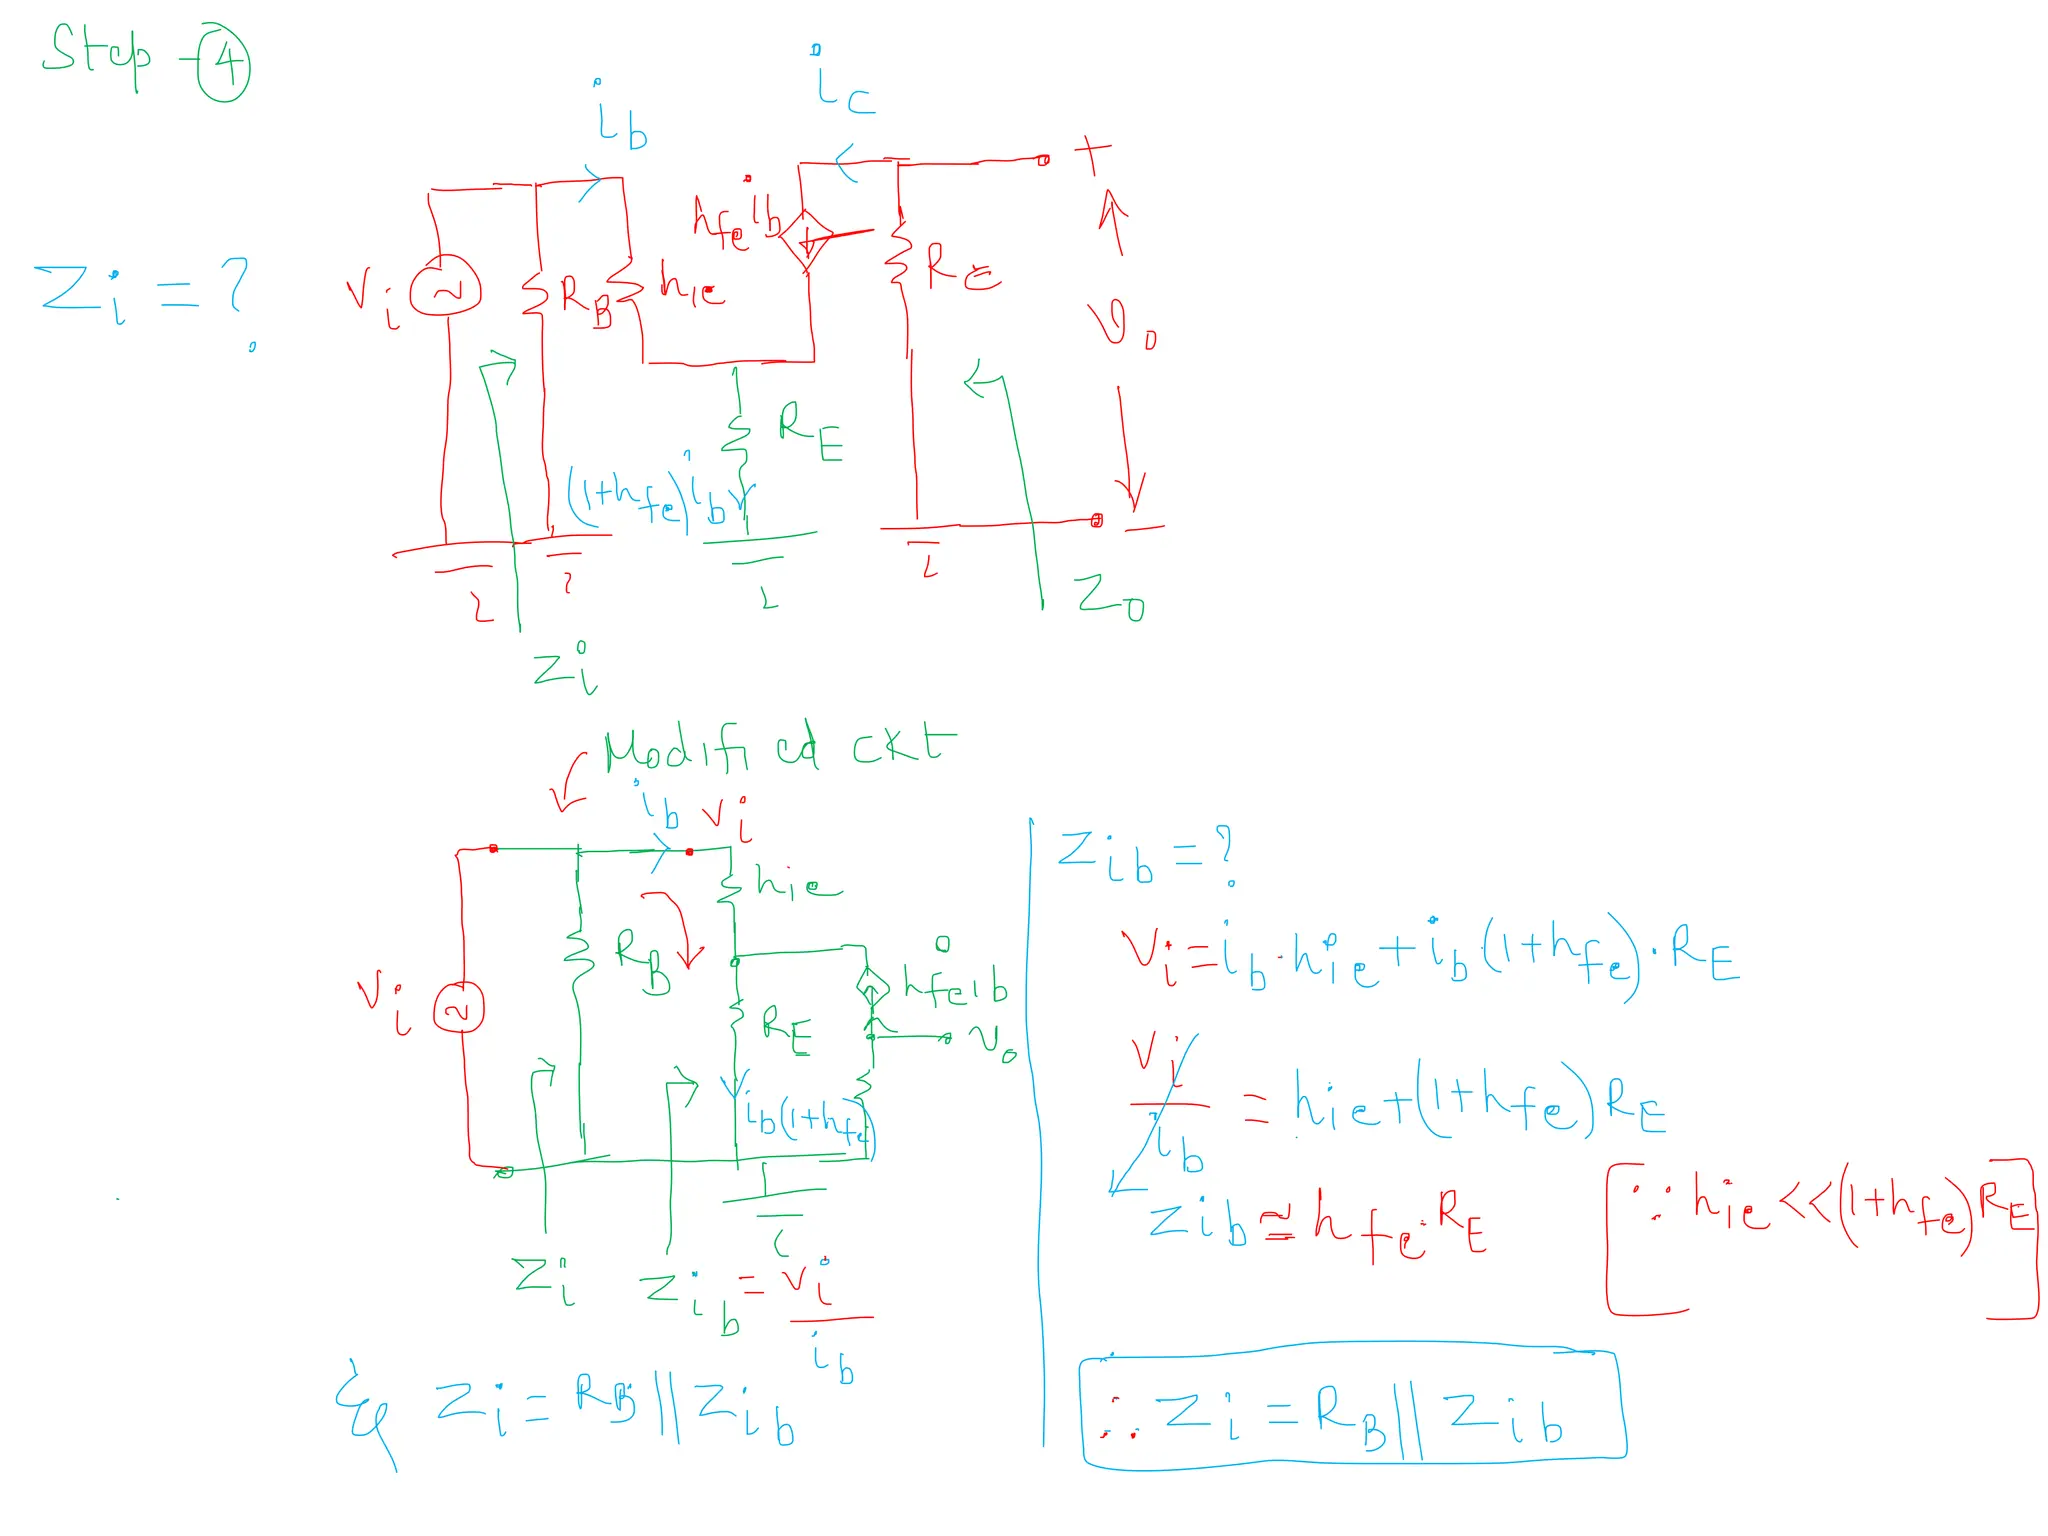 Step - 4
ib
ic
Zi = ?
Vi
RB
hie
hfe ib
RC
+
vo
-
RE
(1+hfe) ib
Zi
Zo
Modified ckt
ib
Vi
hie
Vi
RB
RE
hfe ib
vo
ib(1+hfe)
Zi
Zib = Vi / ib
& Zi = RB || Zib
Zib = ?
Vi = ib · hie + ib · (1+hfe) · RE
Vi / ib = hie + (1+hfe) RE
Zib ≃ hfe · RE
[∵ hie << (1+hfe) RE]
∴ Zi = RB || Zib